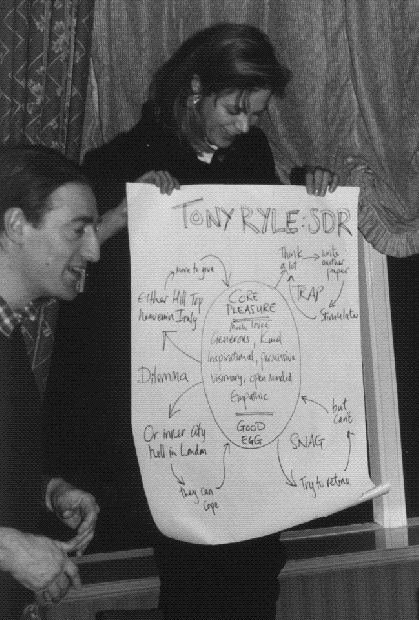 TONY RYLE: SDR
Think
a lot
write
another
paper
TRAP
Stimulates
move to
Either Hill Top
heaven in Italy
Dilemma
Or inner city
hell in London
they can
cope
CORE
PLEASURE
Much loved
Generous, Kind
Inspirational, permissive
visionary, open minded
Empathic
GOOD
EGG
but
can't
SNAG
Try to retire